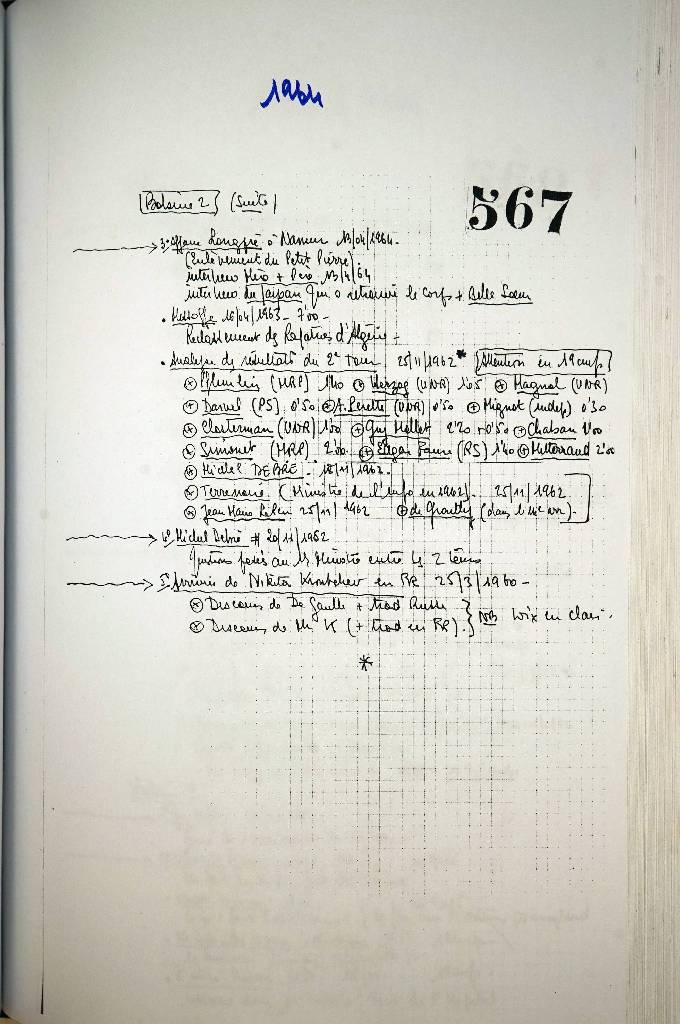 1964
567
Bobine 2 (Suite)
3° Affaire à Namur 13/04/1964 -
(Enlèvement du Petit Pierre).
interview + Père 13/4/64
interview du qui a retrouvé le corps + Belle Soeur
. 16/04/1963 - 7'00 -
Reclassement des Rapatriés d'Algérie -
. Analyse des résultats du 2e Tour 25/11/1962 * Attention en 19 cm/s
Pflimlin (MRP) 1'40 Herzog (UNR) 1'05 Magnol (UNR)
(PS) 0'50 (UNR) 0'50 Mignot (indep) 0'30
Closterman (UNR) 1'00 Guy Mollet 2'20 + 0'50 Chaban 1'00
Simonet (MRP) 2'00 Edgar Faure (RS) 1'40 Mitterrand 2'00
Michel DEBRÉ - 18/11/1962 -
Terrenoire (Ministre de l'Info en 1962) 25/11/1962
Jean Marie 25/11/1962 de Grailly (dans l'
4° Michel Debré # 20/11/1962
Questions posées au 1er Ministre entre les 2 tours
5° Arrivée de Nikita Kroutchev en FR 25/3/1960 -
Discours de De Gaulle + trad Russe
Discours de Mr K (+ trad en FR). } NB voix en clair.
*